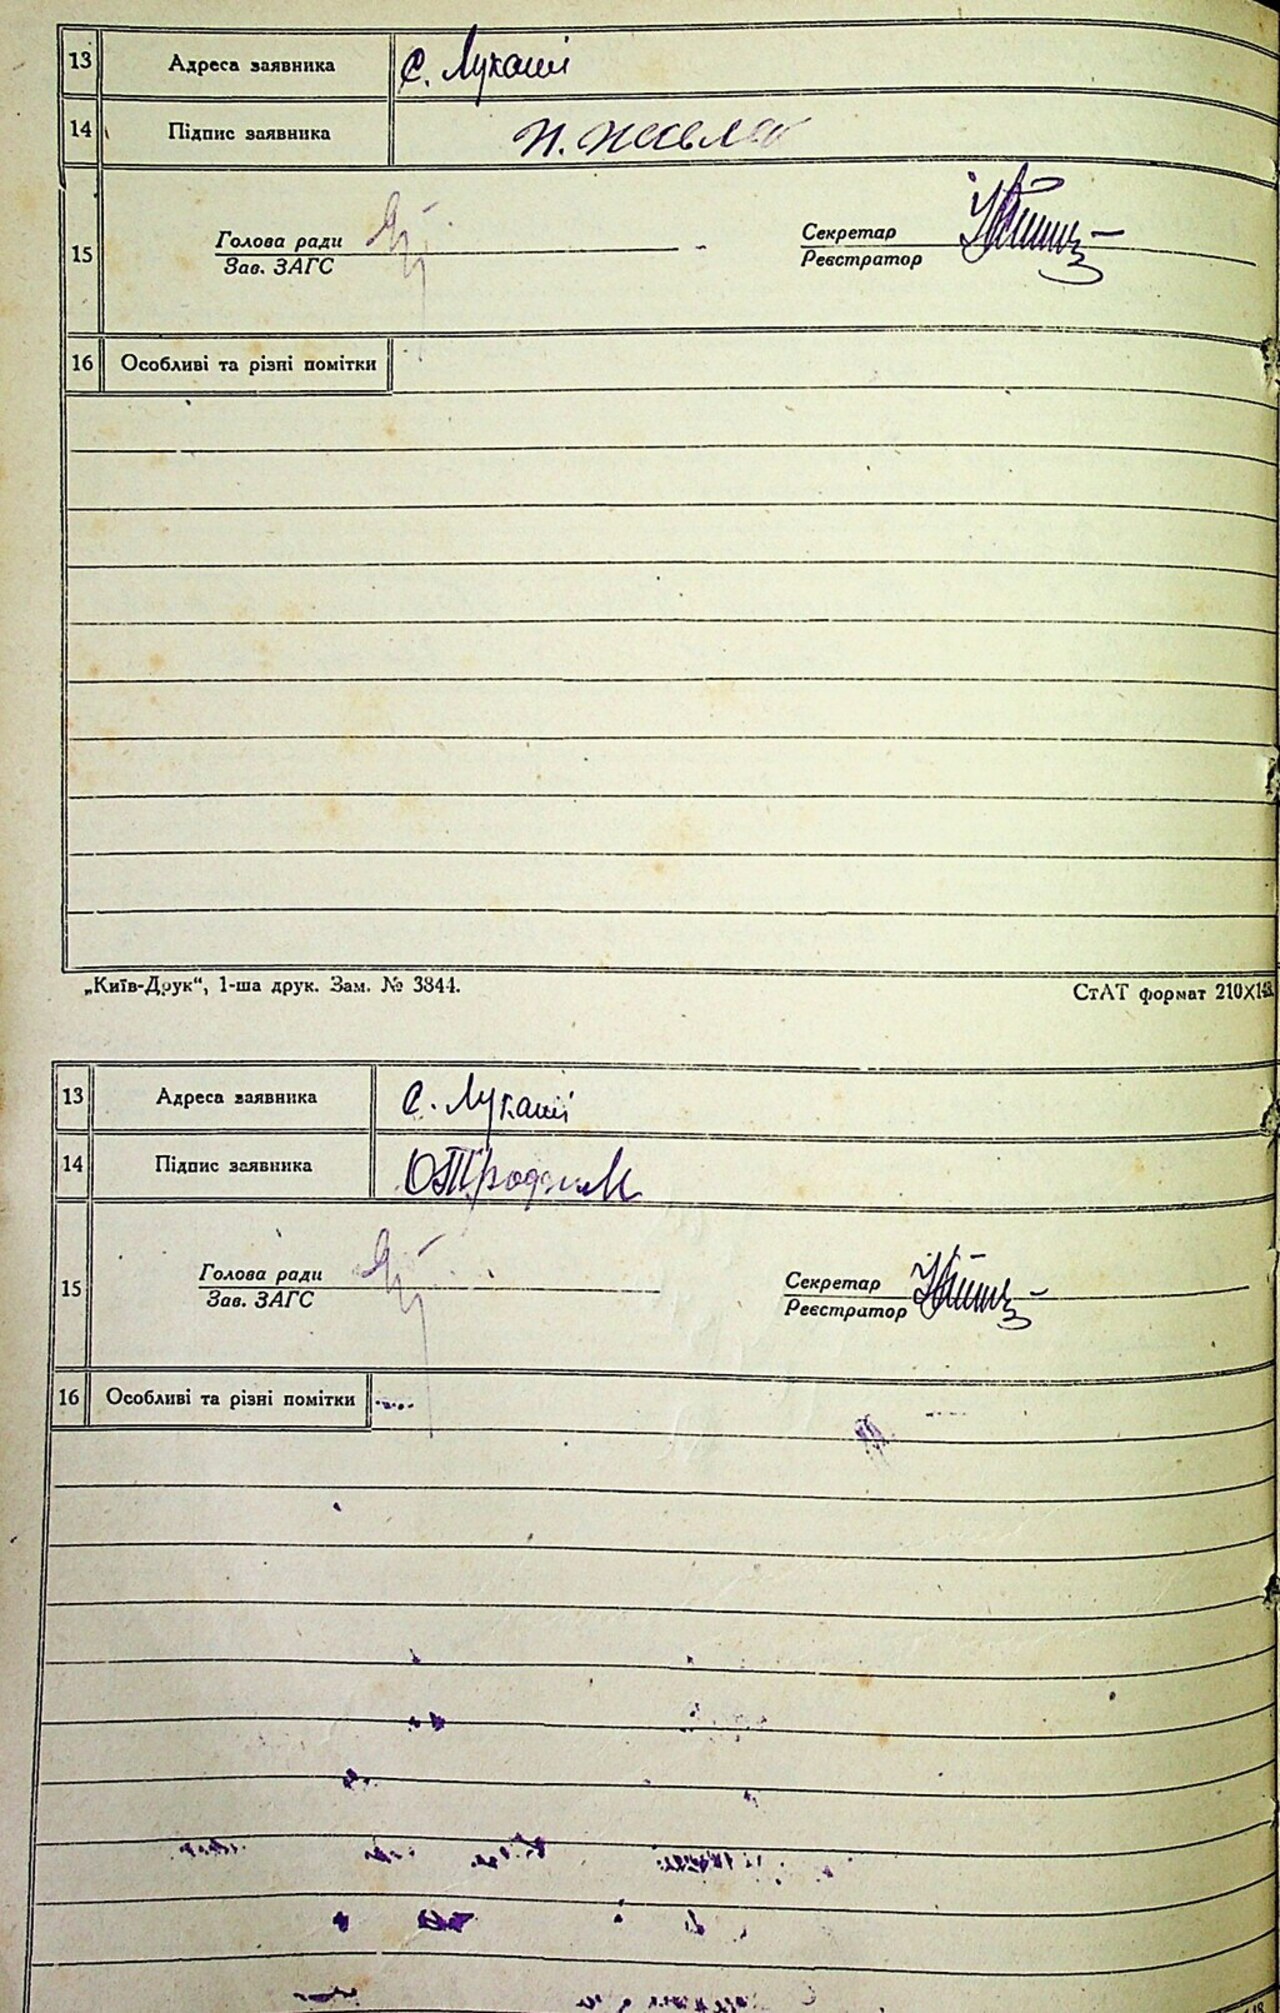 13 Адреса заявника с. Лукаші
14 Підпис заявника
15 Голова ради Секретар
Зав. ЗАГС Реєстратор
16 Особливі та різні помітки
„Київ-Друк“, 1-ша друк. Зам. № 3844. СтАТ формат 210X148
13 Адреса заявника с. Лукаші
14 Підпис заявника
15 Голова ради Секретар
Зав. ЗАГС Реєстратор
16 Особливі та різні помітки